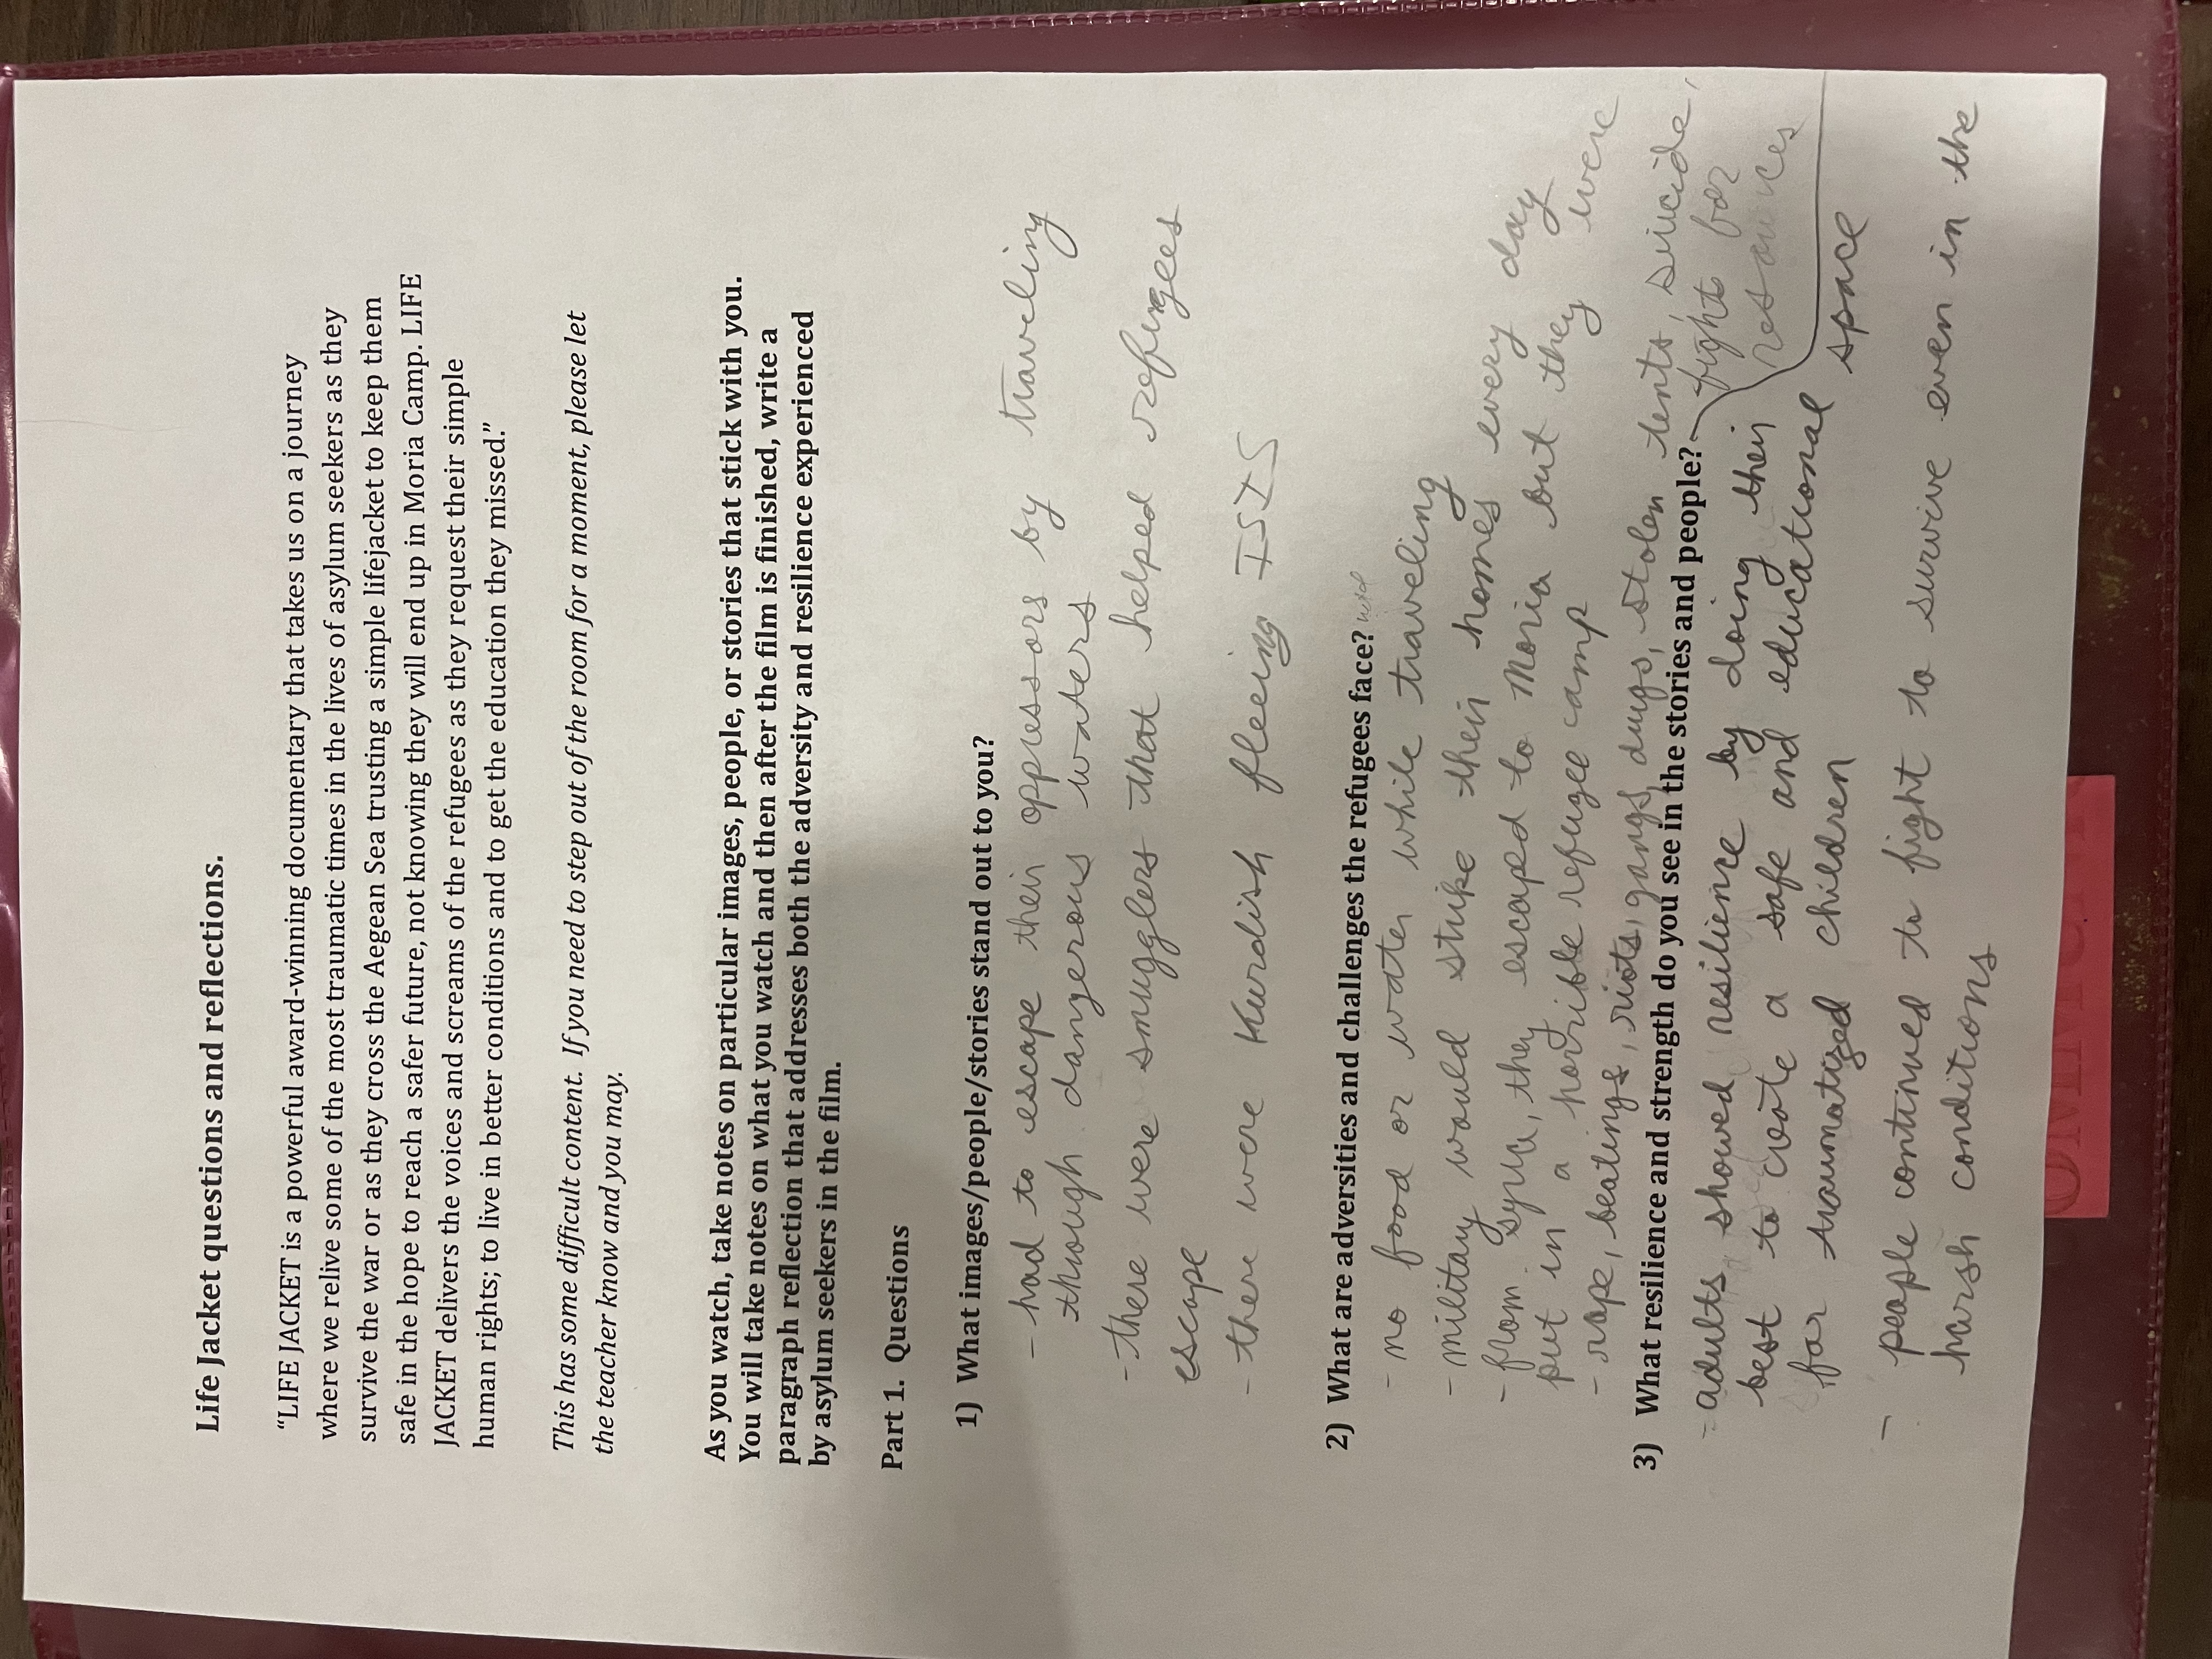 Life Jacket questions and reflections.
“LIFE JACKET is a powerful award-winning documentary that takes us on a journey
where we relive some of the most traumatic times in the lives of asylum seekers as they
survive the war or as they cross the Aegean Sea trusting a simple lifejacket to keep them
safe in the hope to reach a safer future, not knowing they will end up in Moria Camp. LIFE
JACKET delivers the voices and screams of the refugees as they request their simple
human rights; to live in better conditions and to get the education they missed.”
This has some difficult content.  If you need to step out of the room for a moment, please let
the teacher know and you may.
As you watch, take notes on particular images, people, or stories that stick with you.
You will take notes on what you watch and then after the film is finished, write a
paragraph reflection that addresses both the adversity and resilience experienced
by asylum seekers in the film.
Part 1.  Questions
1) What images/people/stories stand out to you?
- had to escape their oppressors by traveling
through dangerous waters
- there were smugglers that helped refugees
escape
- there were Kurdish fleeing ISIS
2) What are adversities and challenges the refugees face?
- no food or water while traveling
- military would strike their homes every day
- from syria, they escaped to Moria but they were
put in a horrible refugee camp
- rape, beatings, riots, gangs, drugs, stolen tents, suicide,
fight for
resources
3) What resilience and strength do you see in the stories and people?
- adults showed resilience by doing their
best to create a safe and educational space
for traumatized children
- people continued to fight to survive even in the
harsh conditions